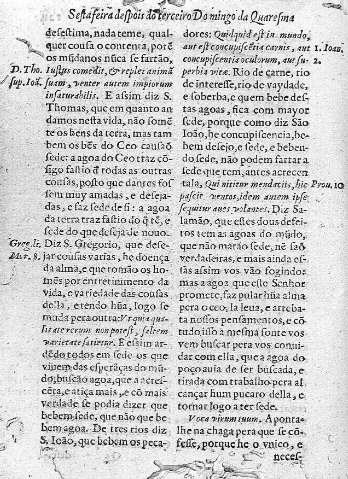 Sesta feira despois do terceiro Domingo da Quaresma
desestima, nada teme, qual-
quer cousa o contenta, porẽ
os mũdanos nũca se fartão,
D. Tho.
sup. Ioã.
Iustus comedit, & replet animã
suam, venter autem impiorum
insaturabilis. E assim diz S.
Thomas, que em quanto an-
damos nesta vida, não somẽ
te os bens da terra, mas tam
bem os bẽs do Ceo causaõ
sede: a agoa do Ceo traz cõ-
sigo fastio de todas as outras
cousas, posto que dantes fos
sem muy amadas, e deseja-
das, e faz sede de si: a agoa
da terra traz fastio do que tẽ, e
sede do que deseja de nouo.
Greg. li.
Diz S. Gregorio, que dese-
jar cousas varias, he doença
da alma, e que romão os ho-
mẽs por entretinimento da
vida, e variedade das cousas
della, e tendo hũa, logo se
muda pera outra:
varietate satietur. E assim ar-
dẽdo todos em sede os que
viuem das esperãças do mũ-
do, buscão agoa, que a acres-
cẽta, e atiça mais, e cõ mais
verdade se podia dizer que
bebem sede, que não que be-
bem agoa. De tres rios diz
S. Ioão, que bebem os peca-
dores: Quidquid est in mundo,
aut est concupiscẽtia carnis, aut
1. Ioan.
2.
concupiscentia oculorum, aut su-
perbia vitæ. Rio de carne, rio
de interesse, rio de vaydade,
e soberba, e quem bebe des-
tas agoas, fica com mayor
sede, porque como diz São
Ioão, he concupiscencia, he
bem desejo, e sede, e beben-
do sede, não podem fartar a
sede que tem, antes acrecen-
tala, Qui nititur mendaciis, hic
Prou. 10
pascit ventos, idem autem ipse
sequitur aues volantes. Diz Sa-
lamão, que esses dous doutri-
nas tem: agoas do mũdo,
que não matão sede, nẽ saõ
verdadeiras, e mais ainda es-
sas assim vos vão fogindo:
mas a agoa que este Senhor
promete, faz pular hũa alma
pera o ceo, la leua, e arreba-
ta nossos pensamentos, e cõ
tudo isso a mesma fonte vos
vem buscar pera vos conui-
dar com ella, que a agoa do
poço auia de ser buscada, e
tirada com trabalho pera al-
cançar hum pucaro della, e
tornar logo a ter sede.
Voca virum tuum. Aponta-
lhe na chaga pera que se cõ-
fesse, porque he o vnico, e
neces-